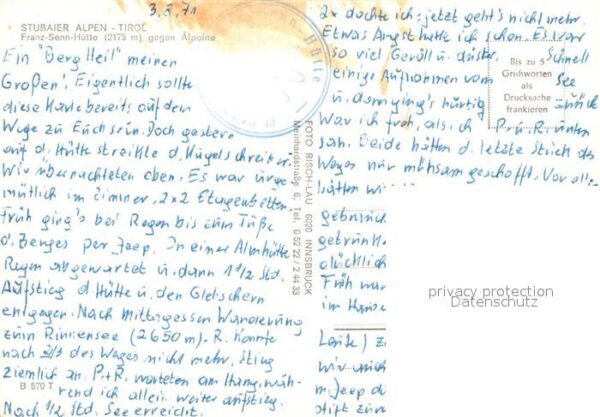 3.8.71
STUBAIER ALPEN - TIROL
Franz-Senn-Hütte (2175 m) gegen Alpeine
Ein "Berg Heil" meinen
Großen'. Eigentlich sollte
diese Karte bereits auf dem
Wege zu Euch sein. Doch gestern
auf d. Hütte streikte d. Kugelschreiber.
Wir übernachteten oben. Es war urge-
mütlich im Zimmer, 2x2 Etagenbetten.
Früh ging's bei Regen bis zum Fuße
d. Berges per Jeep. In einer Almhütte
Regen abgewartet u. dann 1 1/2 Std.
Aufstieg d Hütte u. den Gletschern
entgegen. Nach Mittagessen Wanderung
zum Rinnensee (2650 m). R. konnte
nach 2/3 des Weges nicht mehr. Stieg
ziemlich an. P.+R. warteten am Hang, wäh-
B 570 T
rend ich allein weiter aufstieg.
Nach 1/2 Std. See erreicht.
Hütte
FOTO RISCHLAU 6020 INNSBRUCK
Meinhardstraße 6, Tel. 0 52 22 / 2 44 38
2x dachte ich: jetzt geht's nicht mehr.
Etwas Angst hatte ich schon. Es war
so viel Geröll u. düster. Schnell
einige Aufnahmen vom See
u. dann ging's hurtig zurück
Bis zu 5
Grußworten
als
Drucksache
frankieren
War ich froh, als ich P. u. R. unten
sah. Beide hatten d. letzte Stück des
Weges nur mühsam geschafft. Vor allem
hatten wi
getrunk
glücklich
Früh war
im Hause
Leute)
wir
m Jeep d
stift zum
privacy protection
Datenschutz